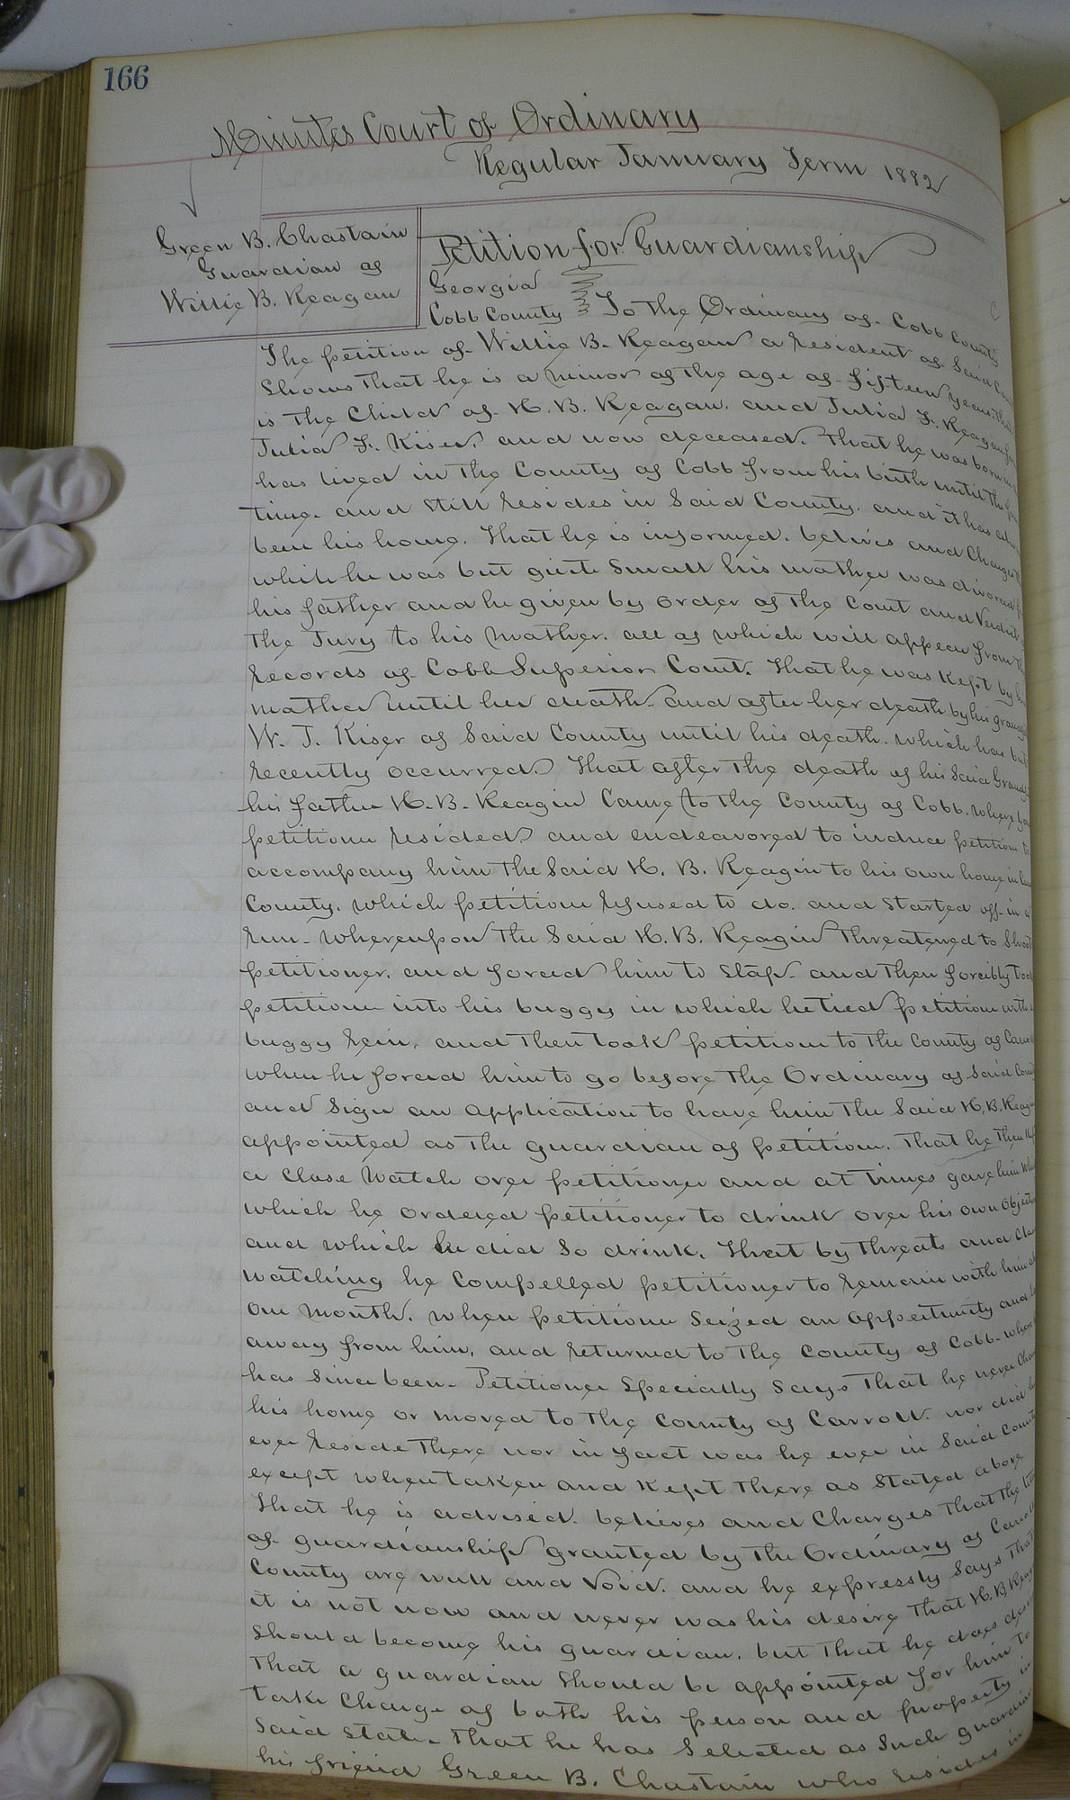 166
Minutes Court of Ordinary
Regular January Term 1882
Green B. Chastain
Guardian of
Willie B. Reagan
Petition for Guardianship
Georgia
Cobb County To the Ordinary of Cobb County
The petition of Willie B. Reagan a resident of Said
Shows that he is a minor of the age of fifteen years. that
is the Child of H. B. Reagan. and Julia F. Reagan
Julia F. Kiser, and now deceased. That he was born
has lived in the County of Cobb from his birth until the
time. and still resides in Said County. and it has
been his home. That he is informed. belives and Charges
while he was but quite small his mother was divorced
his father and he given by order of the Court and Verdict
the Jury to his mother. all of which will appear from
records of Cobb Superior Court. That he was Kept by
mother until her death and after her death by his
W. J. Kiser of Said County until his death. which has but
recently occurred. That after the death of his Said
his father H. B. Reagin Came to the County of Cobb. where
petitioner resided and endeavored to induce petitioner to
accompany him the Said H. B. Reagin to his own home in
County. which petitioner refused to do. and started off in a
run. whereupon the Said H. B. Reagin threatened to Shoot
petitioner. and forced him to stop and then forcibly took
petitioner into his buggy in which he tied petitioner with
buggy rein. and then took petitioner to the County of
when he forced him to go before the Ordinary of Said
and sign an application to have him the Said H. B.
appointed as the guardian of petitioner. That he then
a close watch over petitioner and at times gave him
which he ordered petitioner to drink over his own
and which he did so drink. That by threats and
watching he compelled petitioner to remain with him
one month. when petitioner seized an oppertunity and
away from him. and returned to the County of Cobb. where
has since been. Petitioner Specially says that he never
his home or moved to the County of Carroll. nor did he
ever reside there nor in fact was he ever in Said
except when taken and Kept there as stated above
That he is advised. believes and Charges that the
of guardianship granted by the Ordinary of
County are null and Void. and he expressly says that
it is not now and never was his desire that H. B.
Should become his guardian. but that he does
that a guardian should be appointed for him to
take Charge of both his person and property in
Said State. That he has Selected as Such guardian
his friend Green B. Chastain who resides in